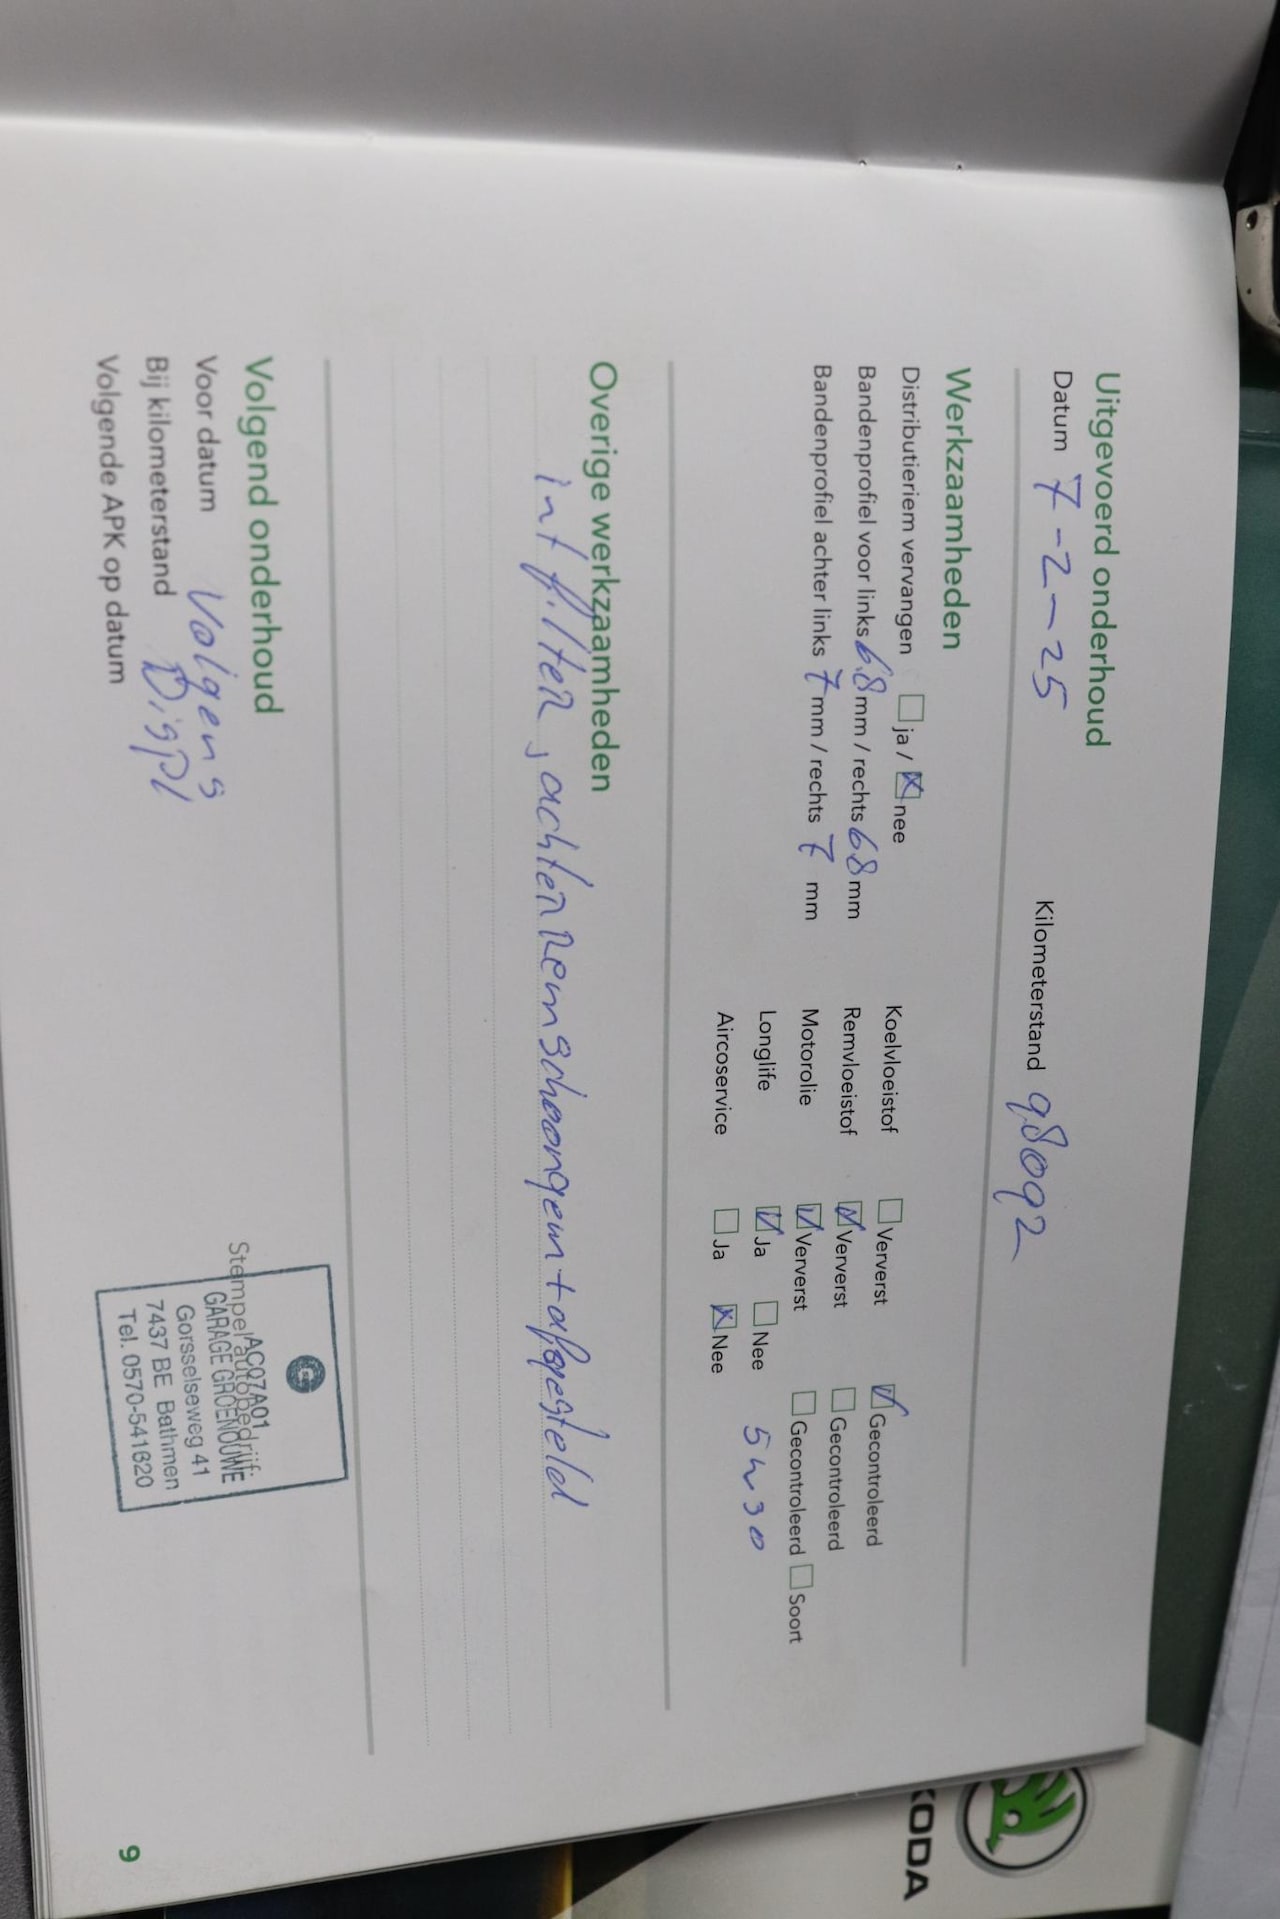 Uitgevoerd onderhoud
Datum 7-2-25 Kilometerstand 98092
Werkzaamheden
Distributieriem vervangen ja / nee
Bandenprofiel voor links 6.8 mm / rechts 6.8 mm
Bandenprofiel achter links 7 mm / rechts 7 mm
Koelvloeistof Ververst Gecontroleerd
Remvloeistof Ververst Gecontroleerd
Motorolie Ververst Gecontroleerd Soort
Longlife Ja Nee 5w30
Aircoservice Ja Nee
Overige werkzaamheden
int filter, achterremschoongem + afgesteld
Volgend onderhoud
Voor datum Volgens
Bij kilometerstand Displ
Volgende APK op datum
Stempel autobedrijf:
AC07A01
GARAGE GROENOUWE
Gorsselseweg 41
7437 BE Bathmen
Tel. 0570-541620
9
KODA